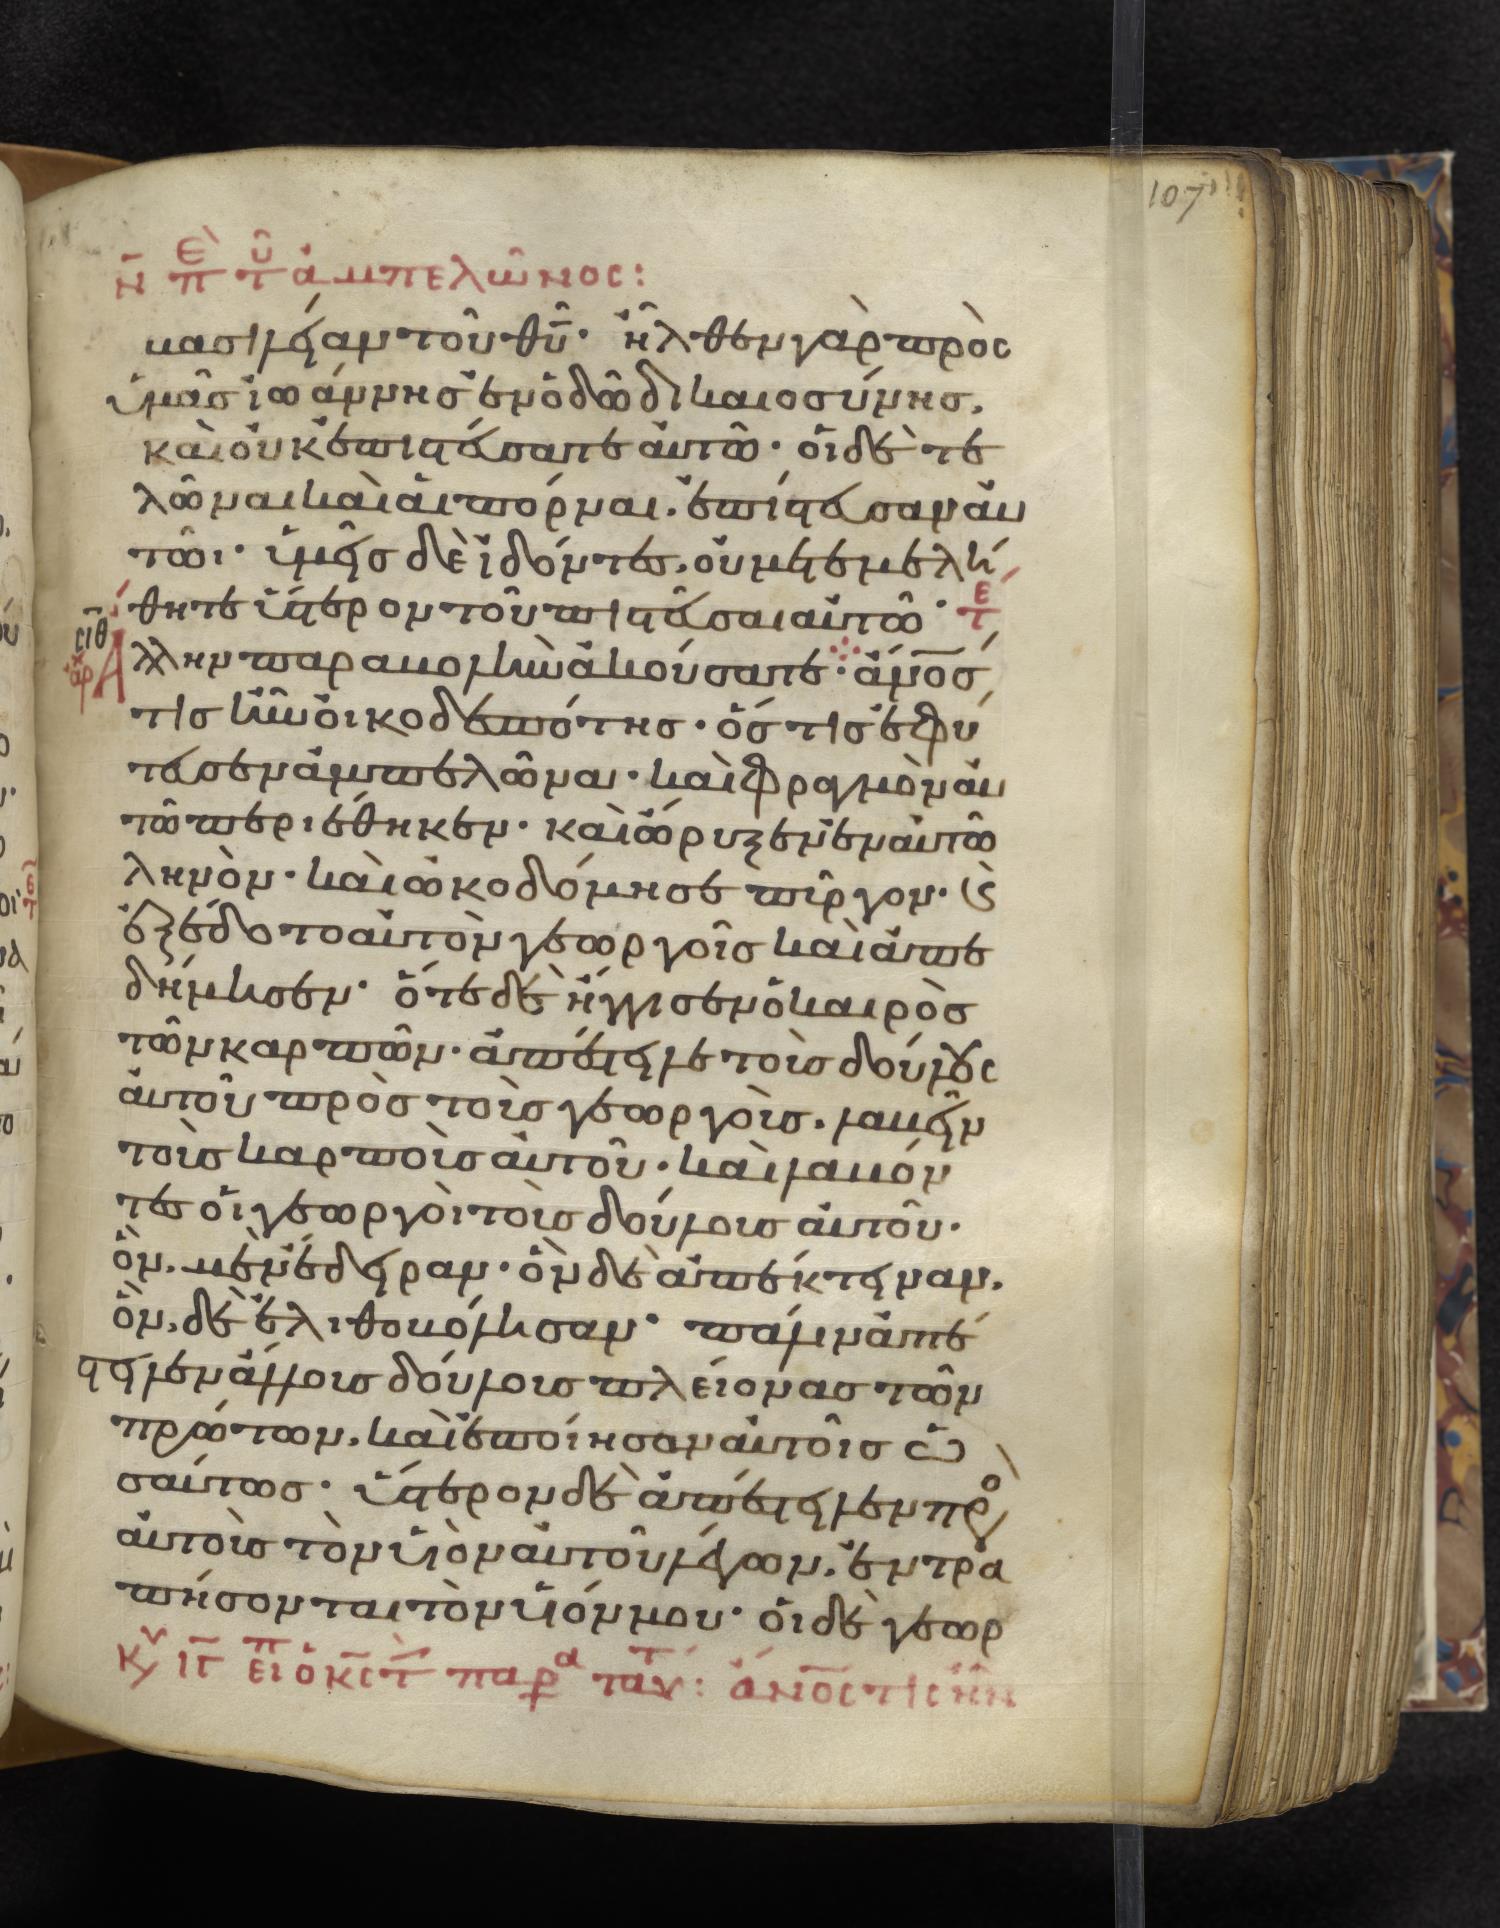 107
ν̅ πὲ τοῦ ἀμπελῶνος:
βασιλείαν τοῦ θυ̅· ἦλθεν γὰρ πρὸς
ὑμᾶς ἰωάννης ἐν ὁδῶ δικαιοσύνης,
καὶ οὐκ ἐπιστεύσατε αὐτῶ· οἱ δὲ τε
λῶναι καὶ αἱ πόρναι, ἐπίστευσαν αὐ
τῶι· ὑμεῖς δὲ ἰδόντες, οὐ μετεμελή
θητε ὕστερον τοῦ πιστεῦσαι αὐτῶ· τε
σιθ
ἀρ
Ἄλλην παραβολὴν ἀκούσατε· ἄνο̅ς
τις ἦν οἰκοδεσπότης· ὅστις ἐφύ
τευσεν ἀμπελῶνα· καὶ φραγμὸν αὐ
τῶ περιέθηκεν· καὶ ὤρυξεν ἐν αὐτῶ
ληνὸν· καὶ ὠκοδόμησε πύργον· ϗ
ἐξέδοτο αὐτὸν γεωργοῖς καὶ ἀπε
δήμησεν· ὅτε δὲ ἤγγισεν ὁ καιρὸς
τῶν καρπῶν· ἀπέστειλε τοὺς δούλους
αὐτοῦ πρὸς τοὺς γεωργοὺς, λαβεῖν
τοὺς καρποὺς αὐτοῦ· καὶ λαβόν
τες οἱ γεωργοὶ τοὺς δούλους αὐτοῦ·
ὃν, μὲν ἔδειραν· ὃν δὲ ἀπέκτειναν,
ὃν, δὲ ἐλιθοβόλησαν· πάλιν ἀπέ
στειλεν ἄλλους δούλους πλείονας τῶν
πρώτων, καὶ ἐποίησαν αὐτοῖς ὡ
σαύτως· ὕστερον δὲ ἀπέστειλεν πρὸ
αὐτοὺς τὸν υἱὸν αὐτοῦ λέγων, ἐντρα
πήσονται τὸν υἱόν μου· οἱ δὲ γεωρ
κυ ιγ̅ εἰπ ὁ κς̅ τ̅ παρα ταυτ: ἄνο̅ς τις ἦν